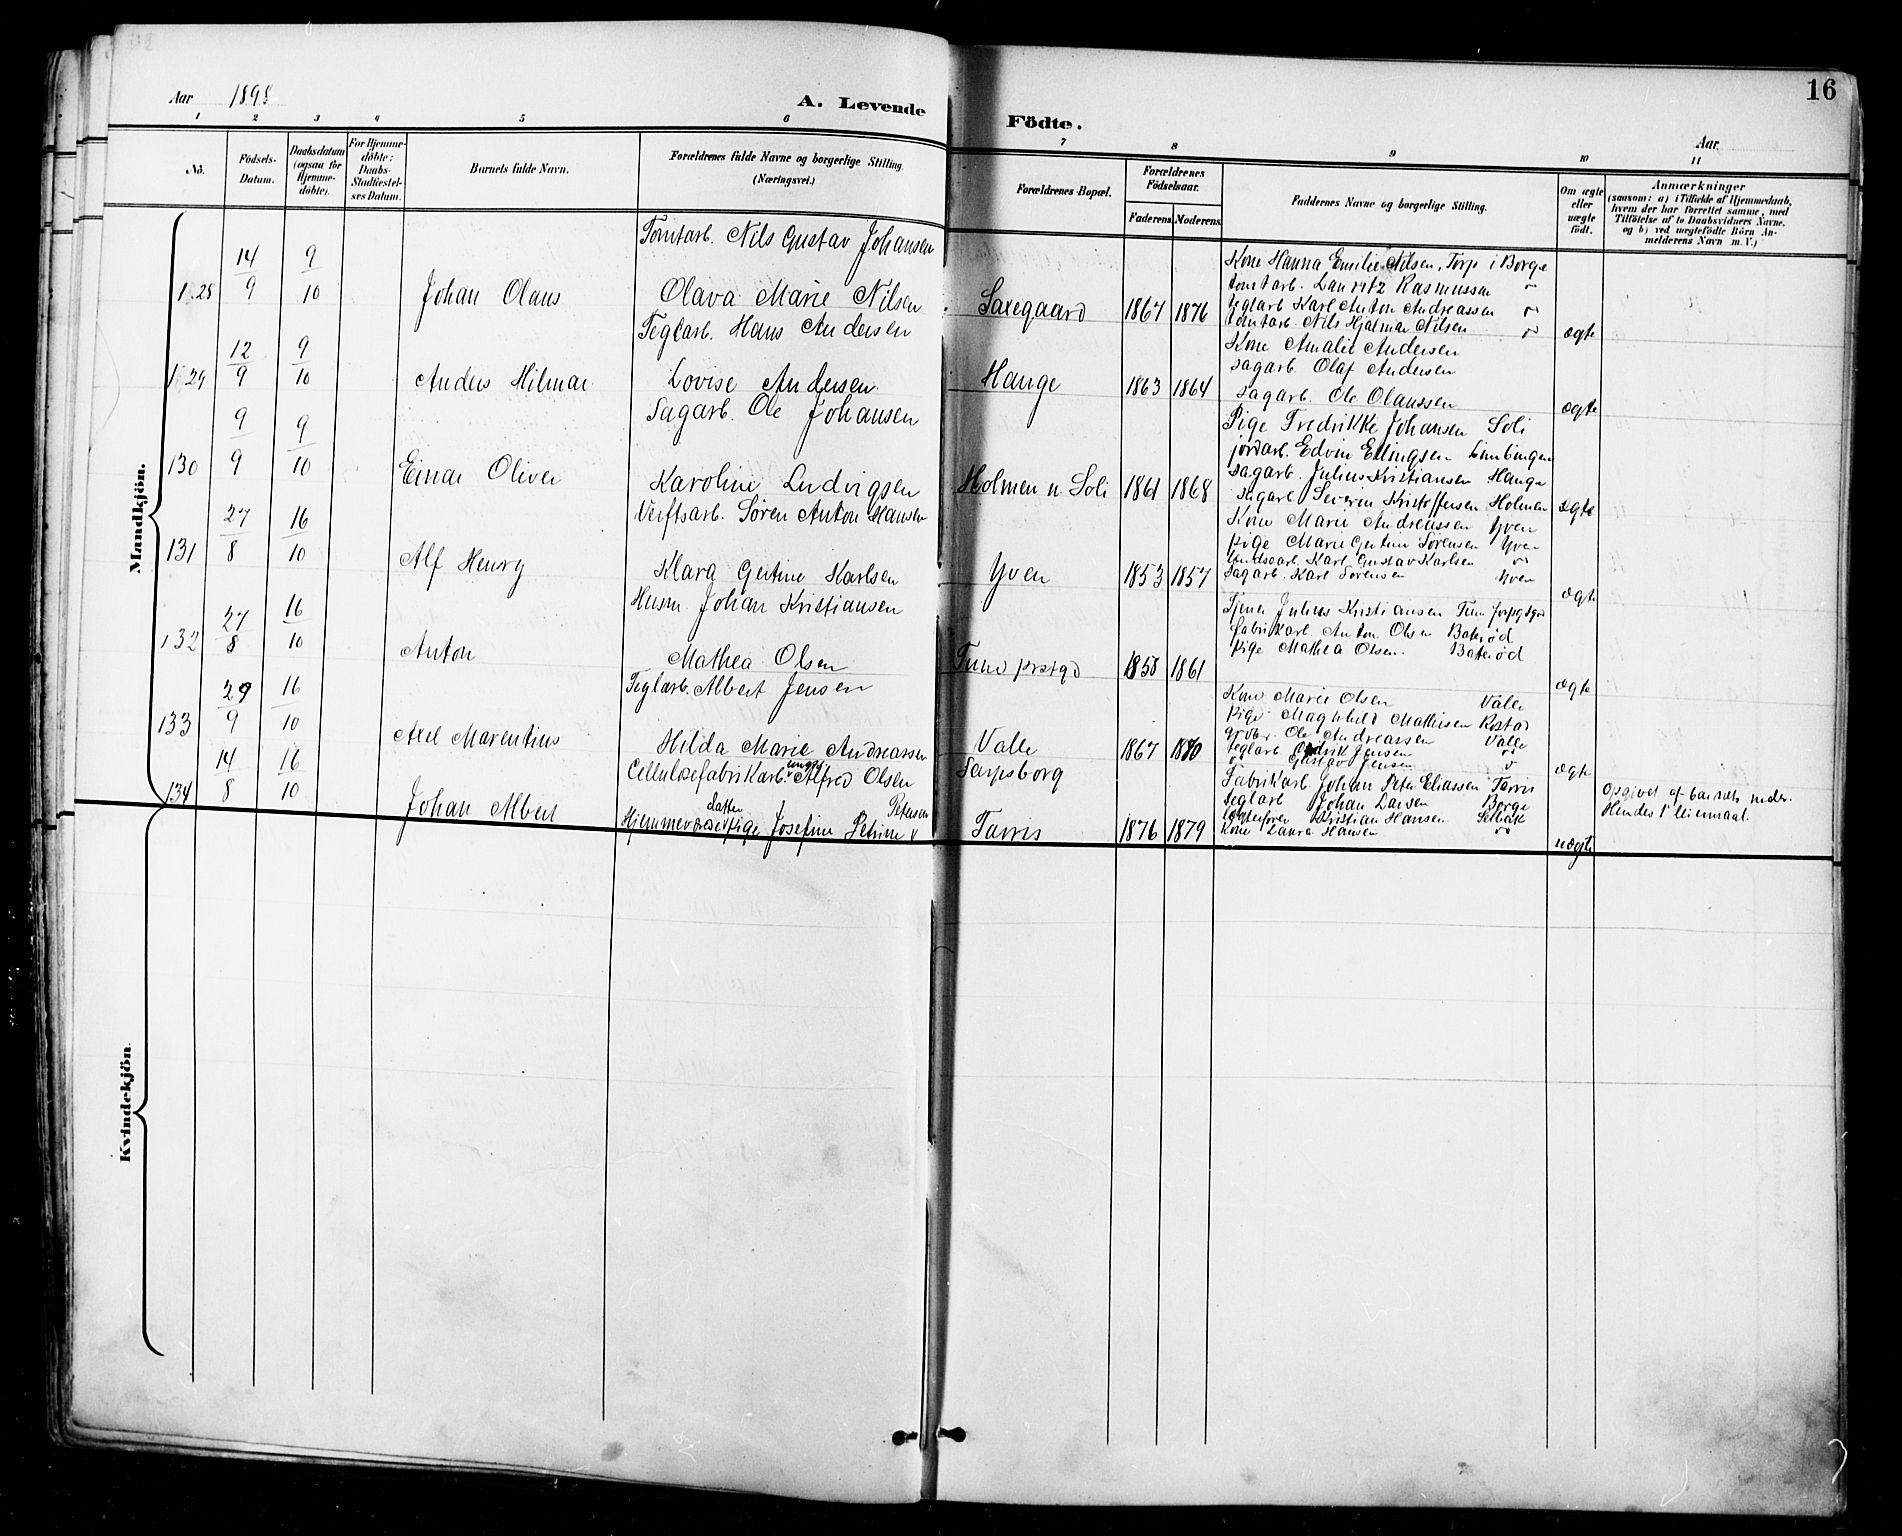 16
Aar 1898
A. Levende
Födte.
Aar
1 2 3 4 5 6
7 8 9 10 11
No.
Födsels-Datum.
Daabsdatum (ogsaa för Hjemmedöbte).
For Hjemmedöbte: Daabs-Stadfæstelses Datum.
Barnets fulde Navn.
Forældrenes fulde Navne og borgerlige Stilling. (Næringsvei.)
Forældrenes Bopæl.
Forældrenes Födselsaar.
Faderens. Moderens.
Faddernes Navne og borgerlige Stilling.
Om ægte eller uægte födt.
Anmærkninger
(saasom: a) i Tilfælde af Hjemmedaab,
hvem der har forrettet samme, med
Tilföielse af to Daabsvidners Navne.
og b) ved uægtefödte Börn An-
melderens Navn m. V.)
Mandkjön.
128 14/9 9/10 Johan Olaus
Tomtarb. Nils Gustav Johansen
Olava Marie Nilsen
Saxegaard 1867 1876
Kone Hanna Emilie Nilsen, Torp i Borge
tomtarb. Lauritz Rasmussen
teglarb Karl Anton Andreassen
tomtarb. Nils Hjalmar Nilsen
ægte
129 12/9 9/10 Anders Hilmar
Teglarb. Hans Andersen
Lovise Andersen
Hauge 1863 1864
Kone Amalie Andersen
sagarb. Olaf Andersen
sagarb. Ole Olaussen
ægte
130 9/9 9/10 Einar Oliver
Sagarb. Ole Johansen
Karoline Ludvigsen
Holmen u Soli 1861 1868
Pige Fredrikke Johansen Soli
jordarb. Edvin Ellingsen
sagarb. Julius Kristiansen Hauge
sagarb Severin Kristoffersen Holmen
ægte
131 27/8 16/10 Alf Henry
Verftsarb. Søren Anton Hansen
Klara Gertine Karlsen
Yven 1853 1857
Kone Marie Andreassen Yven
pige Marie Gertine Sørensen Yven
Karl Gustav Karlsen
Sagarb. Karl Sørensen Yven
ægte
132 27/8 16/10 Anton
Husm. Johan Kristiansen
Mathea Olsen
Tune prstgd 1858 1861
Tjener Julius Kristiansen Tune
fabrikarb. Anton Olsen Baterød
pige Mathea Olsen. Baterød
ægte
133 29/9 16/10 Axel Marentius
Teglarb. Albert Jensen
Hilda Marie Andreassen
Valle 1867 1870
Kone Marie Olsen Valle
pige Maghild Mathisen Rostad
grbr. Ole Andreassen Valle
teglarb. Jensen
Gustav Jensen
ægte
134 14/8 16/10 Johan Albert
Cellulosefabrikarb. ungk. Alfred Olsen
Hjemmeværd. datter pige Josefine Petrine Petersen
Sarpsborg
Tarris 1876 1879
Fabrikarb Johan Peter Eliassen Tarris
teglarb Johan Larsen Borge
Kristian Hansen. Selbak
Kone Laura Hansen
uægte
Opgivet af barnets moder.
Hendes 1ste leiermaal.
Kvindekjön